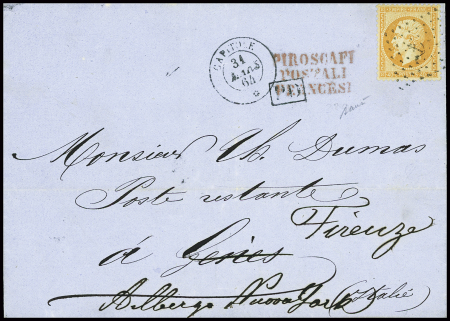 PIROSCAFI
POSTALI
FRANCESI
31
MARS
64
Monsieur Th. Dumas
Poste restante
Firenze
à Gênes
Albergo Nuova York
(Italie)